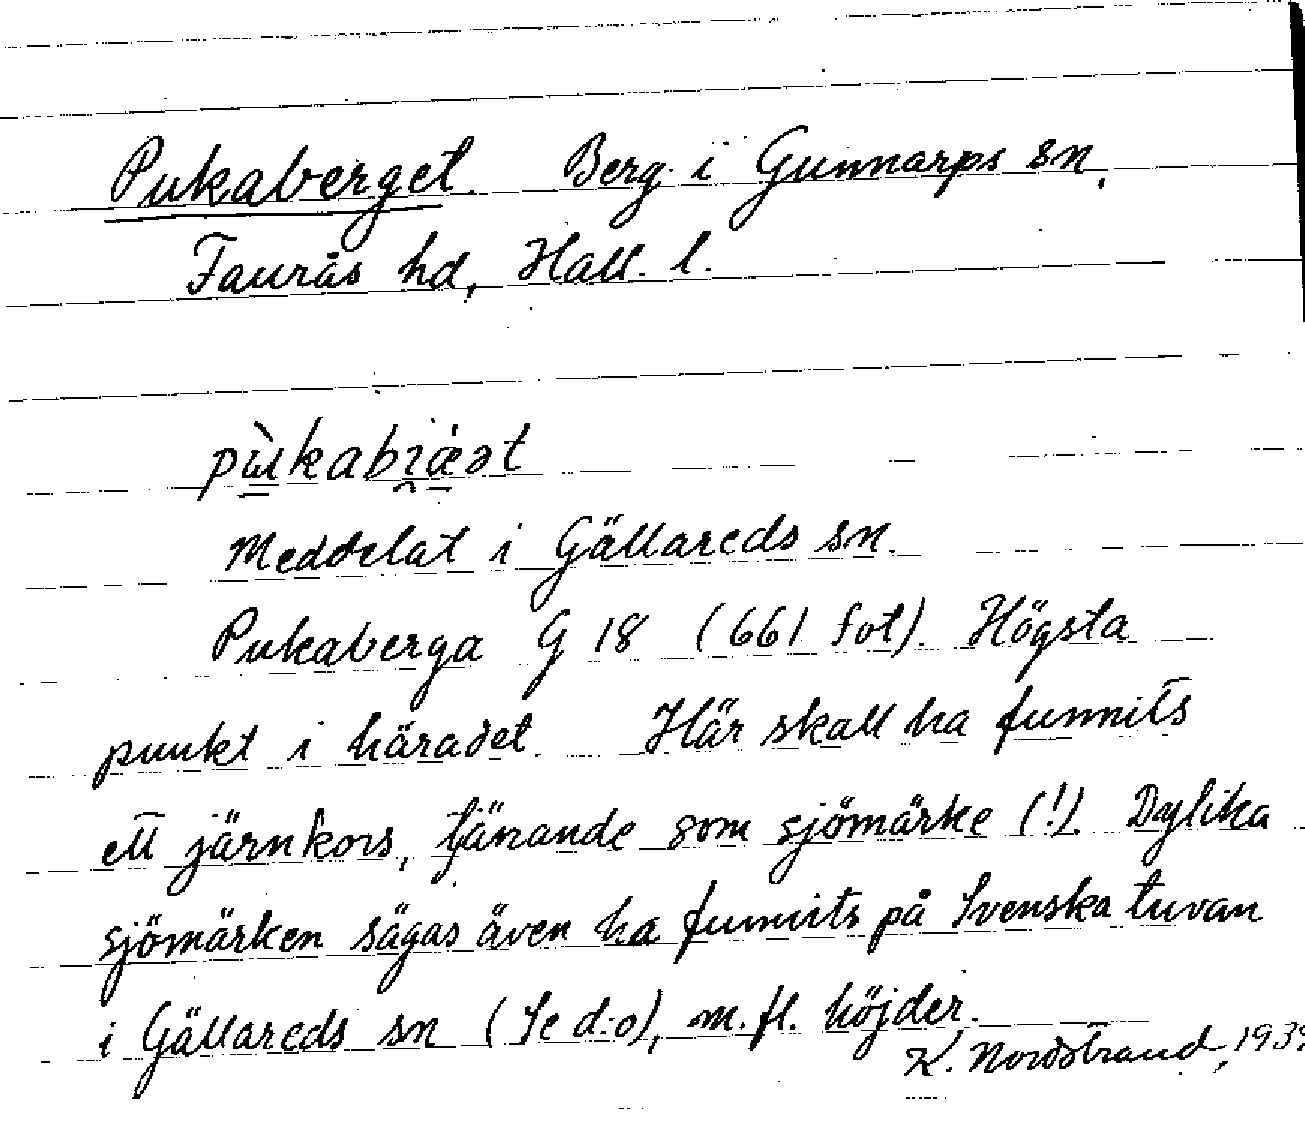 Pukaberget. Berg i Gunnarps sn,
Faurås hd, Hall. l.
pùkabɿæ̀ət
Meddelat i Gällareds sn.
Pukaberga G 18 (661 fot). Högsta
punkt i häradet. Här skall ha funnits
ett järnkors, tjänande som sjömärke (!). Dylika
sjömärken sägas även ha funnits på Svenska tuvan
i Gällareds sn (Se d:o), m. fl. höjder.
K. Nordstrand,